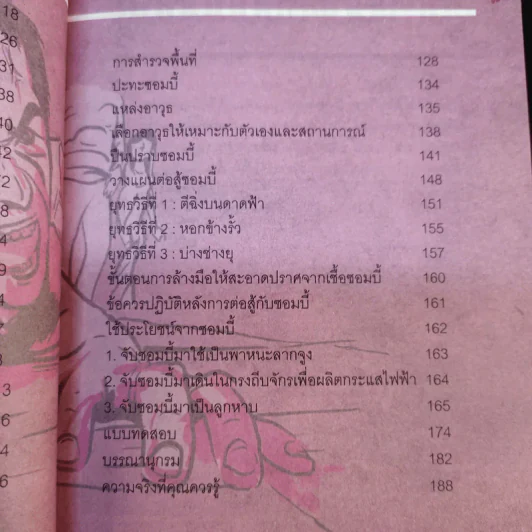 18
26
31
38
40
42
2
8
4
9
4
7
3
3
6
4
6
การสำรวจพื้นที่ 128
ปะทะซอมบี้ 134
แหล่งอาวุธ 135
เลือกอาวุธให้เหมาะกับตัวเองและสถานการณ์ 138
ปืนปราบซอมบี้ 141
วางแผนต่อสู้ซอมบี้ 148
ยุทธวิธีที่ 1 : ตีฉิ่งบนดาดฟ้า 151
ยุทธวิธีที่ 2 : หอกข้างรั้ว 155
ยุทธวิธีที่ 3 : บ่างช่างยุ 157
ขั้นตอนการล้างมือให้สะอาดปราศจากเชื้อซอมบี้ 160
ข้อควรปฏิบัติหลังการต่อสู้กับซอมบี้ 161
ใช้ประโยชน์จากซอมบี้ 162
1. จับซอมบี้มาใช้เป็นพาหนะลากจูง 163
2. จับซอมบี้มาเดินในกรงถีบจักรเพื่อผลิตกระแสไฟฟ้า 164
3. จับซอมบี้มาเป็นลูกหาบ 165
แบบทดสอบ 174
บรรณานุกรม 182
ความจริงที่คุณควรรู้ 188